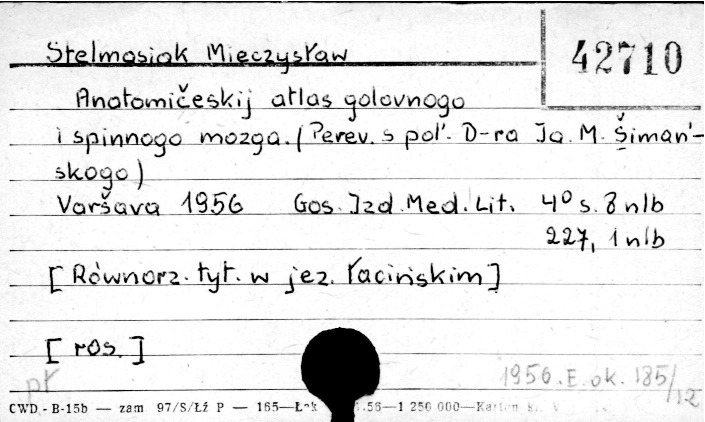 Stelmasiak Mieczysław
42710
Anatomičeskij atlas golovnogo
i spinnogo mozga. (Perev. s pol'. D-ra Ja. M. Šiman'-
skogo)
Varšava 1956 Gos. Izd. Med. Lit. 4° s. 8 nlb
227, 1 nlb
[Równorz. tyt. w jęz. łacińskim]
[ros.]
1956.E.ok. 185/12
pł
CWD - B-15b — zam 97/S/Łź P — 165— .56—1 250 000—Karton